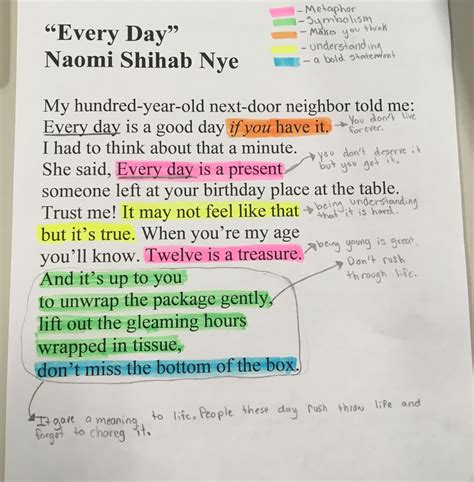 "Every Day"
Naomi Shihab Nye
- Metaphor
- Symbolism
- Makes you think
- understanding
- a bold statement
My hundred-year-old next-door neighbor told me:
Every day is a good day if you have it.
You don't live
forever.
I had to think about that a minute.
She said, Every day is a present
you don't deserve it
but you get it.
someone left at your birthday place at the table.
Trust me! It may not feel like that
being understanding
that it is hard.
but it's true. When you're my age
you'll know. Twelve is a treasure.
being young is great.
And it's up to you
Don't rush
through life.
to unwrap the package gently,
lift out the gleaming hours
wrapped in tissue,
don't miss the bottom of the box.
It gave a meaning to life. People these day rush throw life and
forget to chareg it.